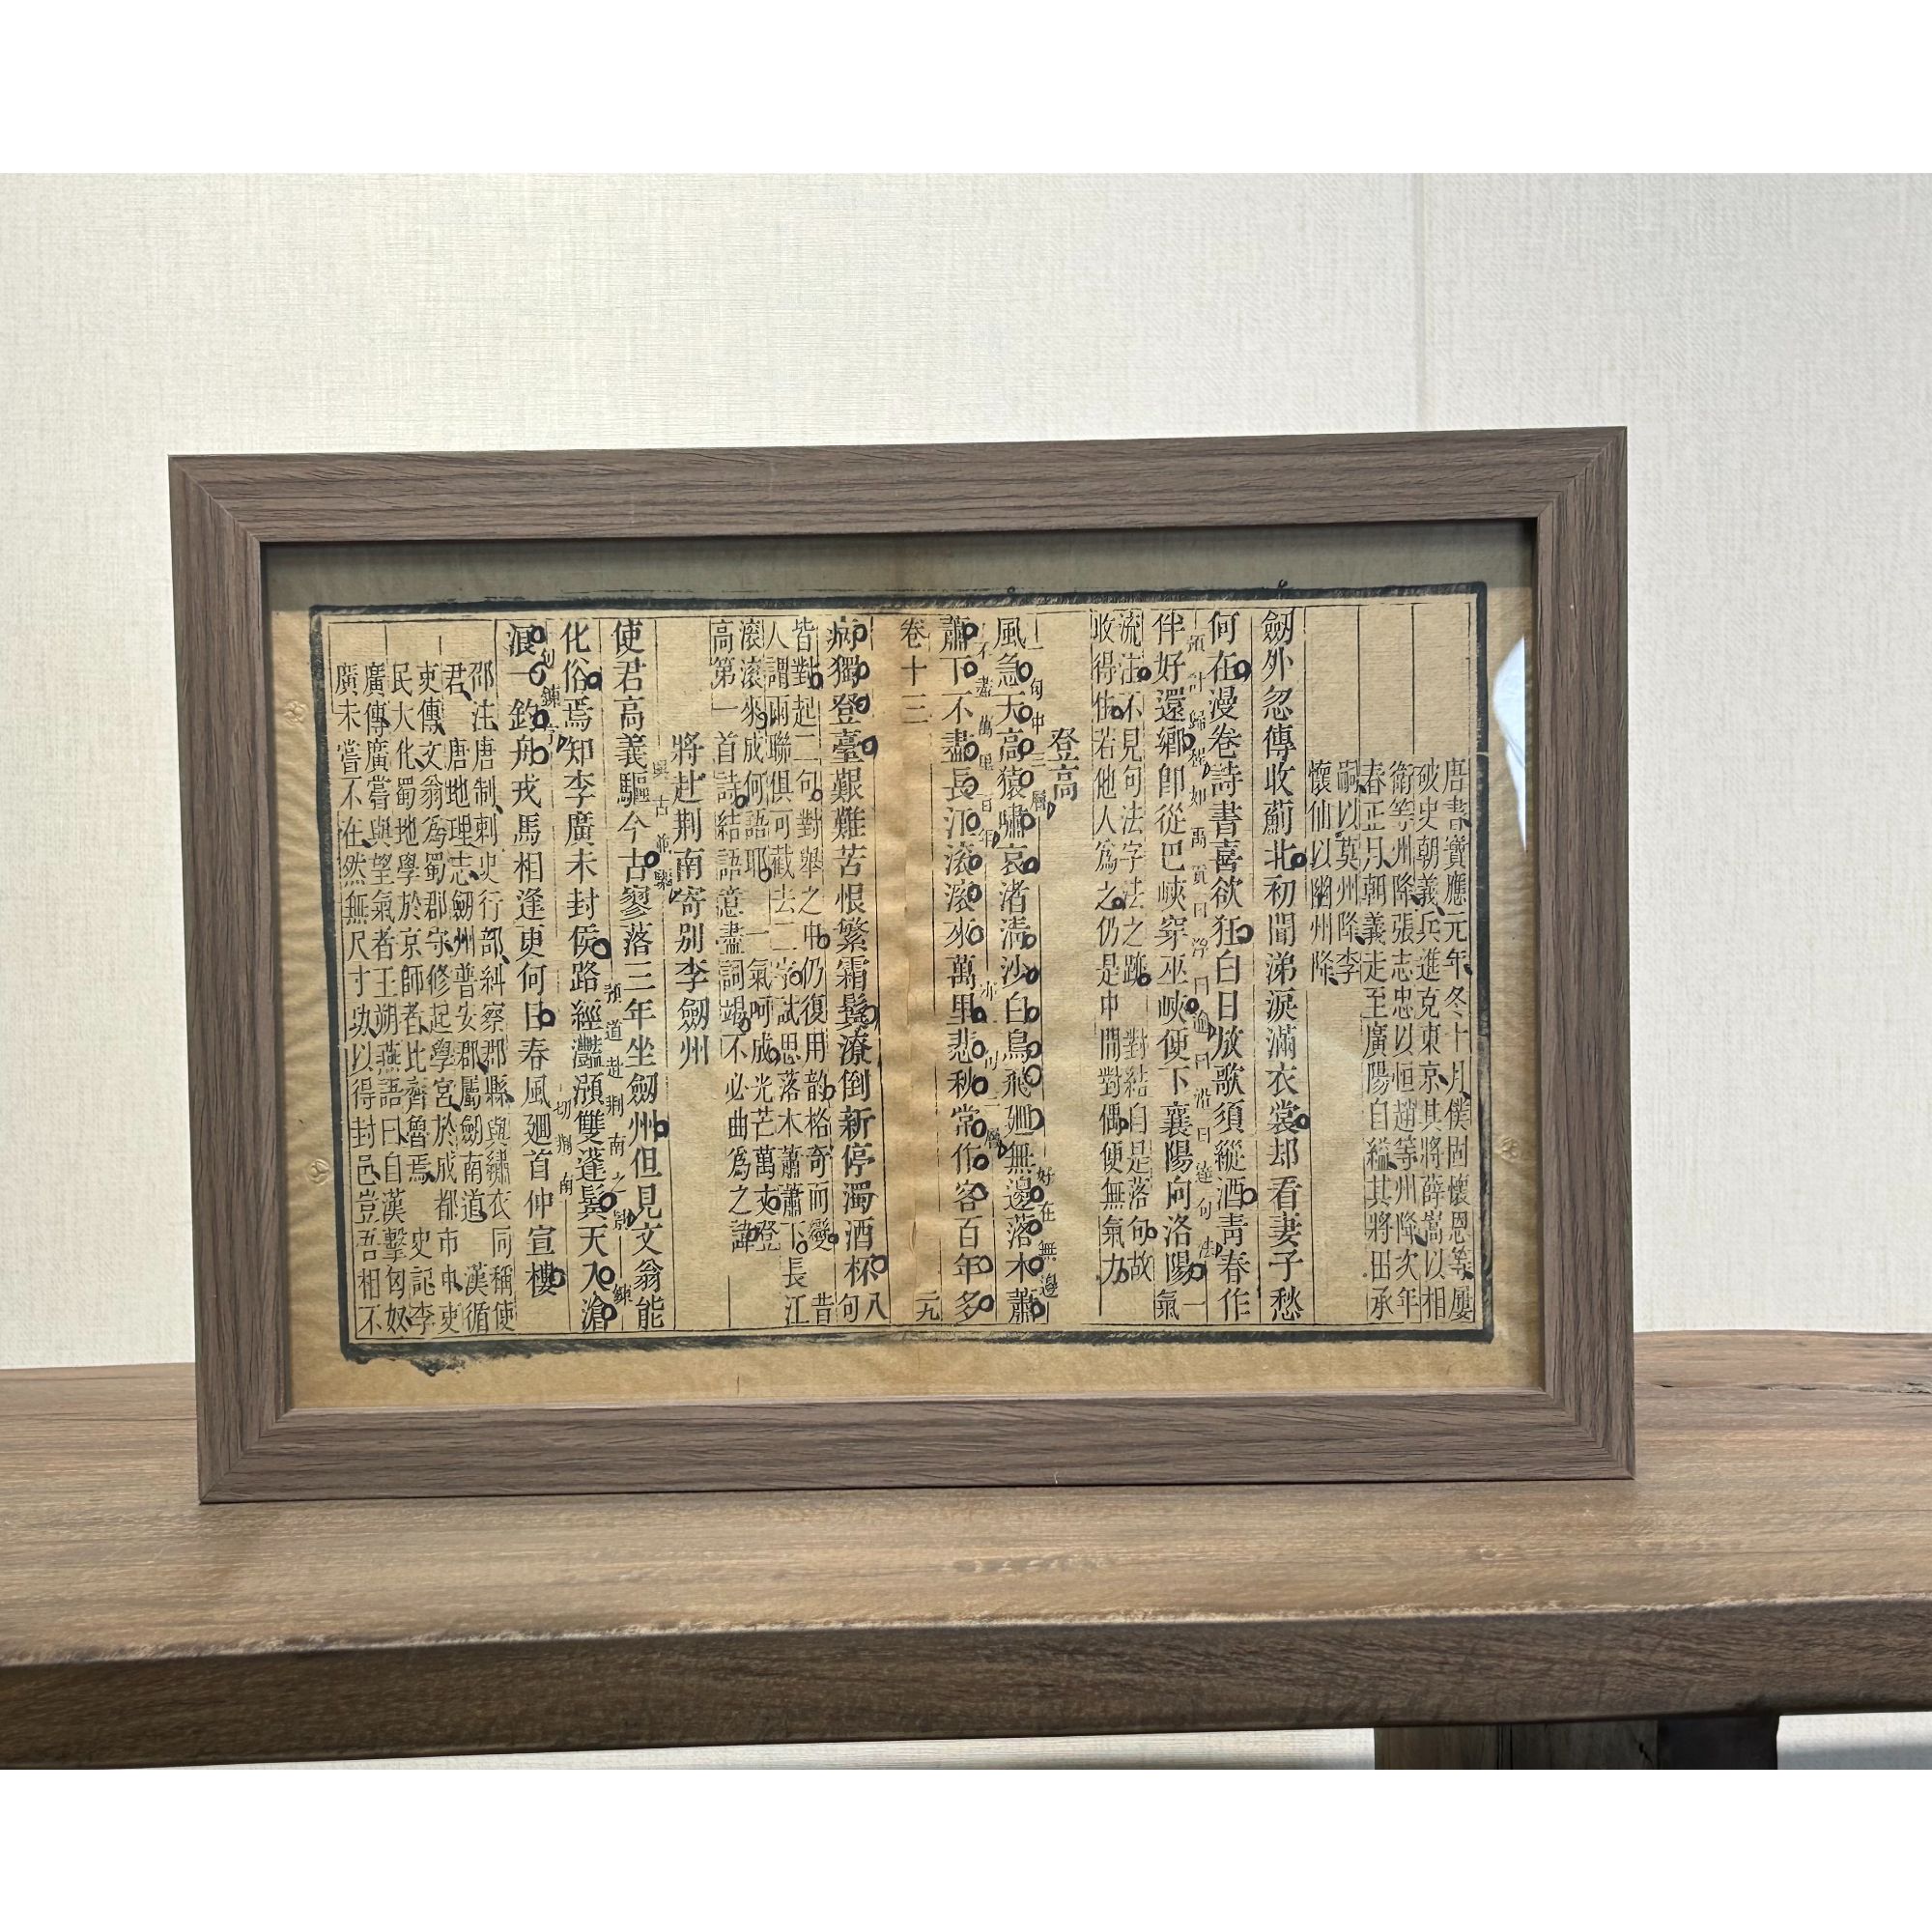 唐書、寶應元年、冬十月、僕固懷恩等、屢
破史朝義兵、進克東京、其將薛嵩以相
衛等州降、張志忠以恒趙等州降、次年
春正月、朝義走至廣陽自縊、其將田承
嗣以莫州降、李
懷仙以幽州降、
劒外忽傳收薊北初聞涕淚滿衣裳却看妻子愁
何在漫卷詩書喜欲狂白日放歌須縱酒青春作
預計歸程如禹貢曰浮曰逾曰沿曰達句法
伴好還鄉卽從巴峽穿巫峽便下襄陽向洛陽一氣
流注不見句法字法之跡對結自是落句故
收得住若他人爲之仍是中間對偶便無氣力
登高
一句中三層 好在無邊
風急天高猿嘯哀渚清沙白鳥飛廻無邊落木蕭
不盡萬里百年 亦一句二層
蕭下不盡長江滾滾來萬里悲秋常作客百年多
卷十三 二九
病獨登臺艱難苦恨繁霜鬢潦倒新停濁酒杯八句
皆對起二句對舉之中仍復用韵格奇而變昔
人謂兩聯俱可截去二字試思落木蕭蕭下長江
滾滾來成何語耶一氣呵成光芒萬丈登
高第一首詩結語意盡詞竭不必曲爲之諱
將赴荆南寄別李劒州
與古並驅
使君高義驅今古寥落三年坐劒州但見文翁能
預道赴荆南之景 鍊
化俗焉知李廣未封侯路經灧澦雙蓬鬢天入滄
句鍊字 一切荆南
浪一釣舟戎馬相逢更何日春風廻首仲宣樓
邵注、唐制、刺史行部、糾察郡縣、與繡衣同稱使
君、唐地理志、劒州普安郡、屬劒南道、漢循
吏傳、文翁爲蜀郡守、修起學宫、於成都市中、吏
民大化、蜀地學於京師者、比齊魯焉、史記李
廣傳、廣嘗與望氣者王朔燕語曰、自漢擊匈奴、
廣未嘗不在、然無尺寸功以得封邑、豈吾相不